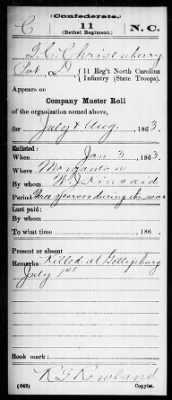 (Confederate.)
C 11 N.C.
(Bethel Regiment.)
T. C. Chrisenbury
Pvt, Co. D, 11 Reg't North Carolina
Infantry (State Troops).
Appears on
Company Muster Roll
of the organization named above,
for July & Aug., 1863.
Enlisted:
When Jan 3, 1863.
Where Morganton
By whom W. Kincaid
Period three years or during the war
Last paid:
By whom
To what time , 186 .
Present or absent
Remarks: Killed at Gettysburg
July 1st
Book mark:
(642) R T Rowland
Copyist.